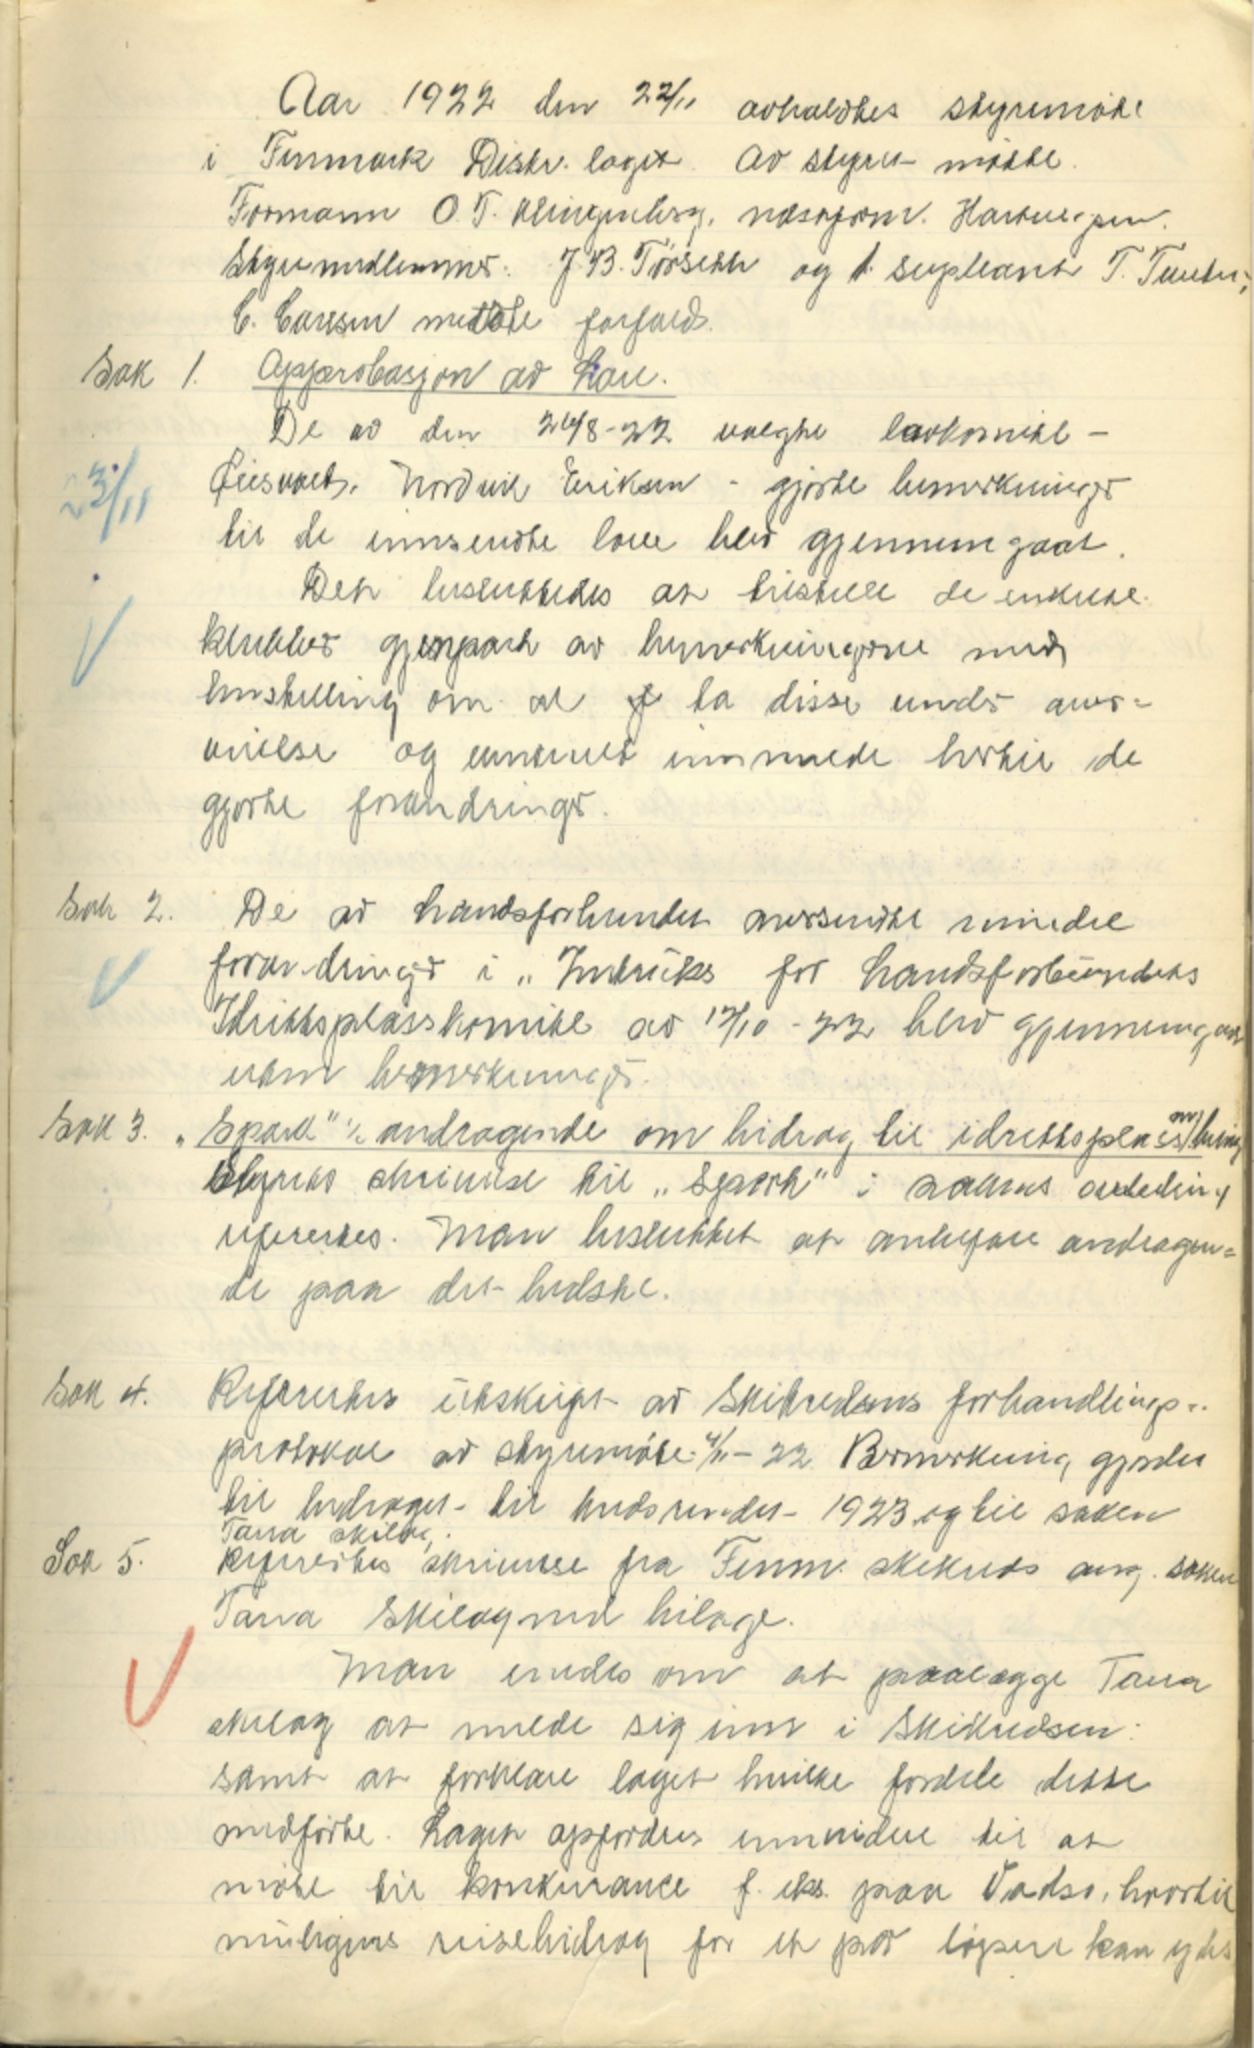 Aar 1922 den 22/11 avholdtes styremöte
i Finmark Distr. laget. Av styret mötte.
Formann O. T. Klingenberg, næstform.
Styremedlemmer. J. B. Törseth og 1. supleant T.
C. Carlsen meldte forfald.
Sak 1. Approbasjon av Love.
De av den 26/8-22 valgte lovkomite -
Nordvik Eriksen - gjorte bemerkninger
23/11
til de innsendte love blev gjennemgaat.
Det besluttedes at tilstille de enkelte
klubber gjenpart av bemerkningerne med
henstilling om at ta disse under over=
veielse og eventuelt innmelde hertil de
gjorte forandringer.
Sak 2. De av Landsforbundet oversendte
forandringer i „Instruks for Landsforbundets
Idrettsplasskomite av 17/10-22 blev gjennemgaat
uten bemerkninger.
Sak 3. „Spark" 's andragende om bidrag til idrettsplass
Styrets skrivelse til „Spark" i sakens anledning
refertes. Man besluttet at anbefale andragen=
de paa det bedste.
Sak 4. Refertes utskrift av Skikredsens forhandlings-
protokol av styremöte 4/11-22. Bemerkning gjordes
til bidraget til budsjendet 1923 og til saken
Tana skilag.
Sak 5. Refertes skrivelse fra Finm. skikreds ang. saken
Tana Skilag med bilage.
Man enedes om at paalægge Tana
skilag at melde sig inn i Skikredsen
samt at forklare laget hvilke fordele dette
medförte. Laget opfordres innvidere til at
möte til konkurance f. eks. paa Vadsö, hvortil
muligens reisebidrag for et par löpere kan ydes